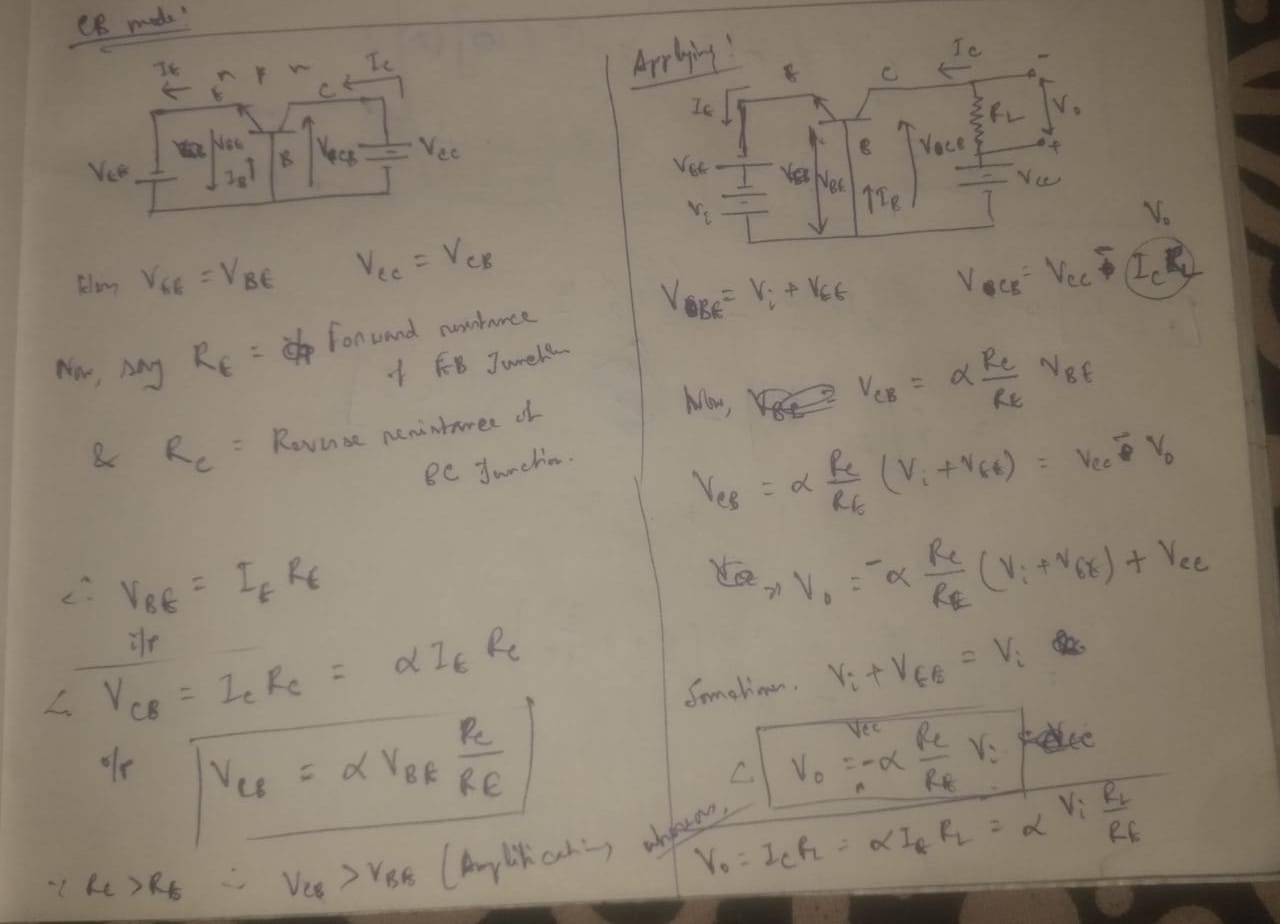 CB mode:
IE E n p n C IC
VEE VEE IB B VCB VCC
VEE = VBE VCC = VCB
Now, say RE = Forward resistance
of EB Junction
& Rc = Reverse resistance of
BC Junction.
∴ VBE = IE RE
i/p
∠ VCB = Ic Rc = α IE Rc
o/p
VCB = α VBE Rc/RE
∵ Rc > RE ∴ VCB > VBE (Amplification)
Applying!
E C IC -
IE RL Vo
VEE VBE B VCB +
Vi IB VCC
Vo
VBE = Vi + VEE VCB = VCC - Ic RL
Now, VCB = α Rc/RE VBE
VCB = α Rc/RE (Vi + VEE) = Vcc - Vo
⇒ Vo = -α Rc/RE (Vi + VEE) + Vcc
Sometimes. Vi + VEE = Vi
∴ Vo = Vcc - α Rc/RE Vi
Vo = Ic RL = α IE RL = α Vi RL/RE